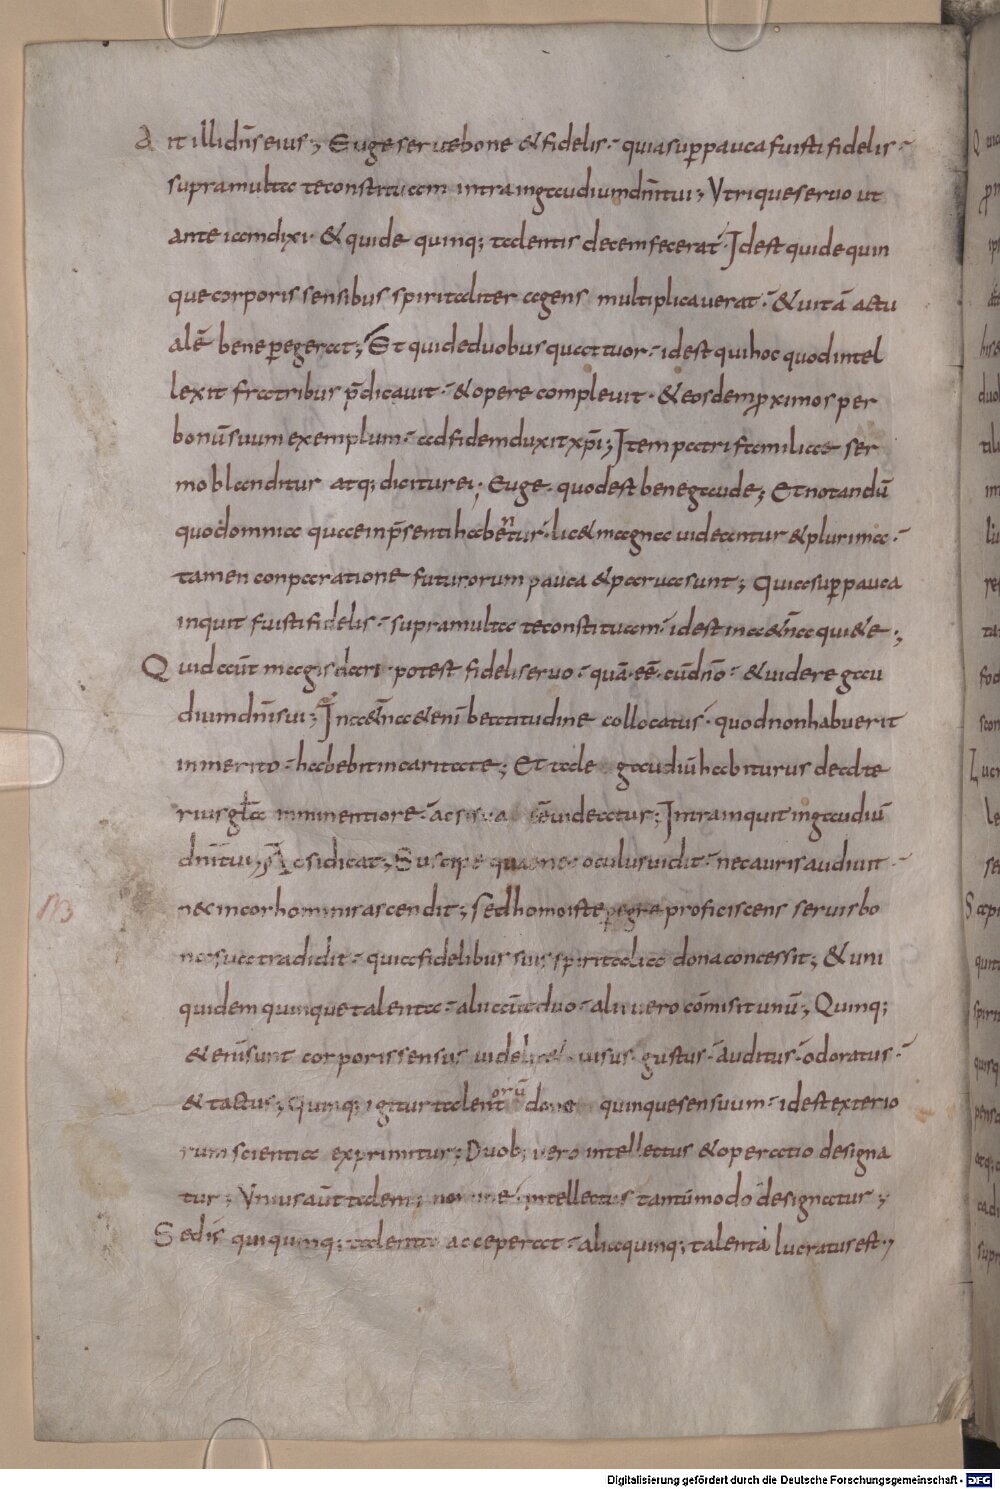 Ait illi dn̄s eius; Euge serue bone & fidelis· quia sup̱ pauca fuisti fidelis·
supra multa te constituam intra in gaudium dn̄i tui; Vtrique seruo ut
ante iam dixi· & qui de quinq; talentis decem fecerat· Id est qui de quin
que corporis sensibus spiritaliter agens multiplicauerat· & uitā actu
alē bene p̱egerat; Et qui de duobus quattuor· id est qui hoc quod intel
lexit fratribus p̄dicauit· & opere compleuit· & eosdem proximos per
bonū suum exemplum· ad fidem duxit xp̄i; Item patri familiae ser
mo blanditur atq; dicitur ei; Euge· quod est bene gaude; Et notandū
quod omnia quae in p̄senti habentur· licet magna uideantur & plurima·
tamen conparatione futurorum pauca & parua sunt; Quia sup̱ pauca
inquit fuisti fidelis· supra multa te constituam· id est in aet̄na quiete;
Quid aūt magis dari potest fideli seruo· quā eē cū dn̄o· & uidere gau
dium dn̄i sui; In aet̄na etenī beatitudine collocatus· quod non habuerit
in merito· habebit in caritate; Et tale gaudiū habiturus de alte
rius gl̄a imminentiore· ac si sua eē uideatur; Intra inquit in gaudiū
dn̄i tui; Ac si dicat; Suscipe qua nec oculus uidit· nec auris audiuit·
nec in cor hominis ascendit; Sed homo iste peegre proficiscens seruis bo
na sua tradidit· quia fidelibus suis spiritalia dona concessit; & uni
quidem quinque talenta· alii aūt duo· alii uero cōmisit unū; Quinq;
& enī sunt corporis sensus uidelicet· uisus· gustus· auditus· odoratus·
& tactus; Quinq; igitur talentorū dona quinque sensuum· id est exterio
rum scientia exprimitur; Duob; uero intellectus & operatio designa
tur; Vnius aūt talenti nomine· intellectus tantūmodo designatur;
Sed is qui quinq; talenta acceperat· alia quinq; talenta lucratus est;
113
Digitalisierung gefördert durch die Deutsche Forschungsgemeinschaft - DFG